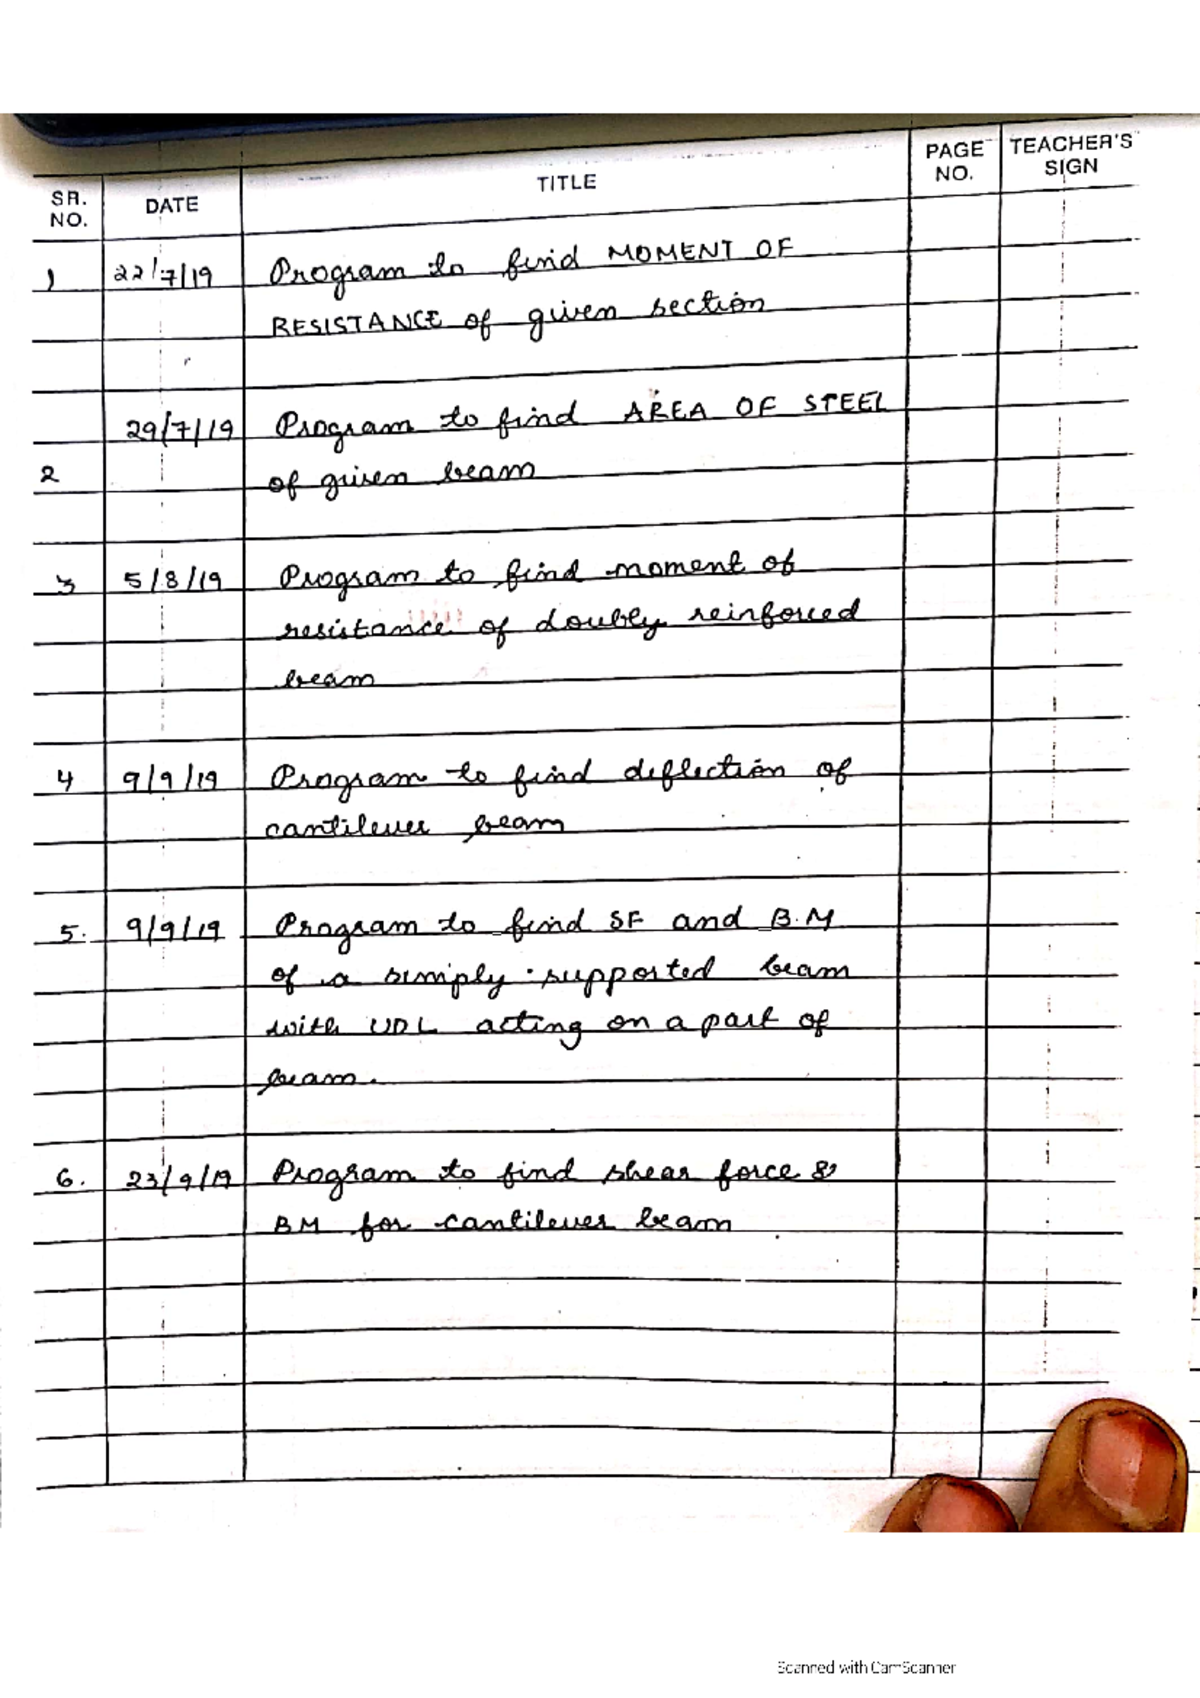 SR. NO. DATE TITLE PAGE NO. TEACHER'S SIGN
1 22/7/19 Program to find MOMENT OF
RESISTANCE of given section
29/7/19 Program to find AREA OF STEEL
2 of given beam
3 5/8/19 Program to find moment of
resistance of doubly reinforced
beam
4 9/9/19 Program to find deflection of
cantilever beam
5. 9/9/19 Program to find SF and B.M
of a simply supported beam
with UDL acting on a part of
beam.
6. 23/9/19 Program to find shear force &
BM for cantilever beam
Scanned with CamScanner